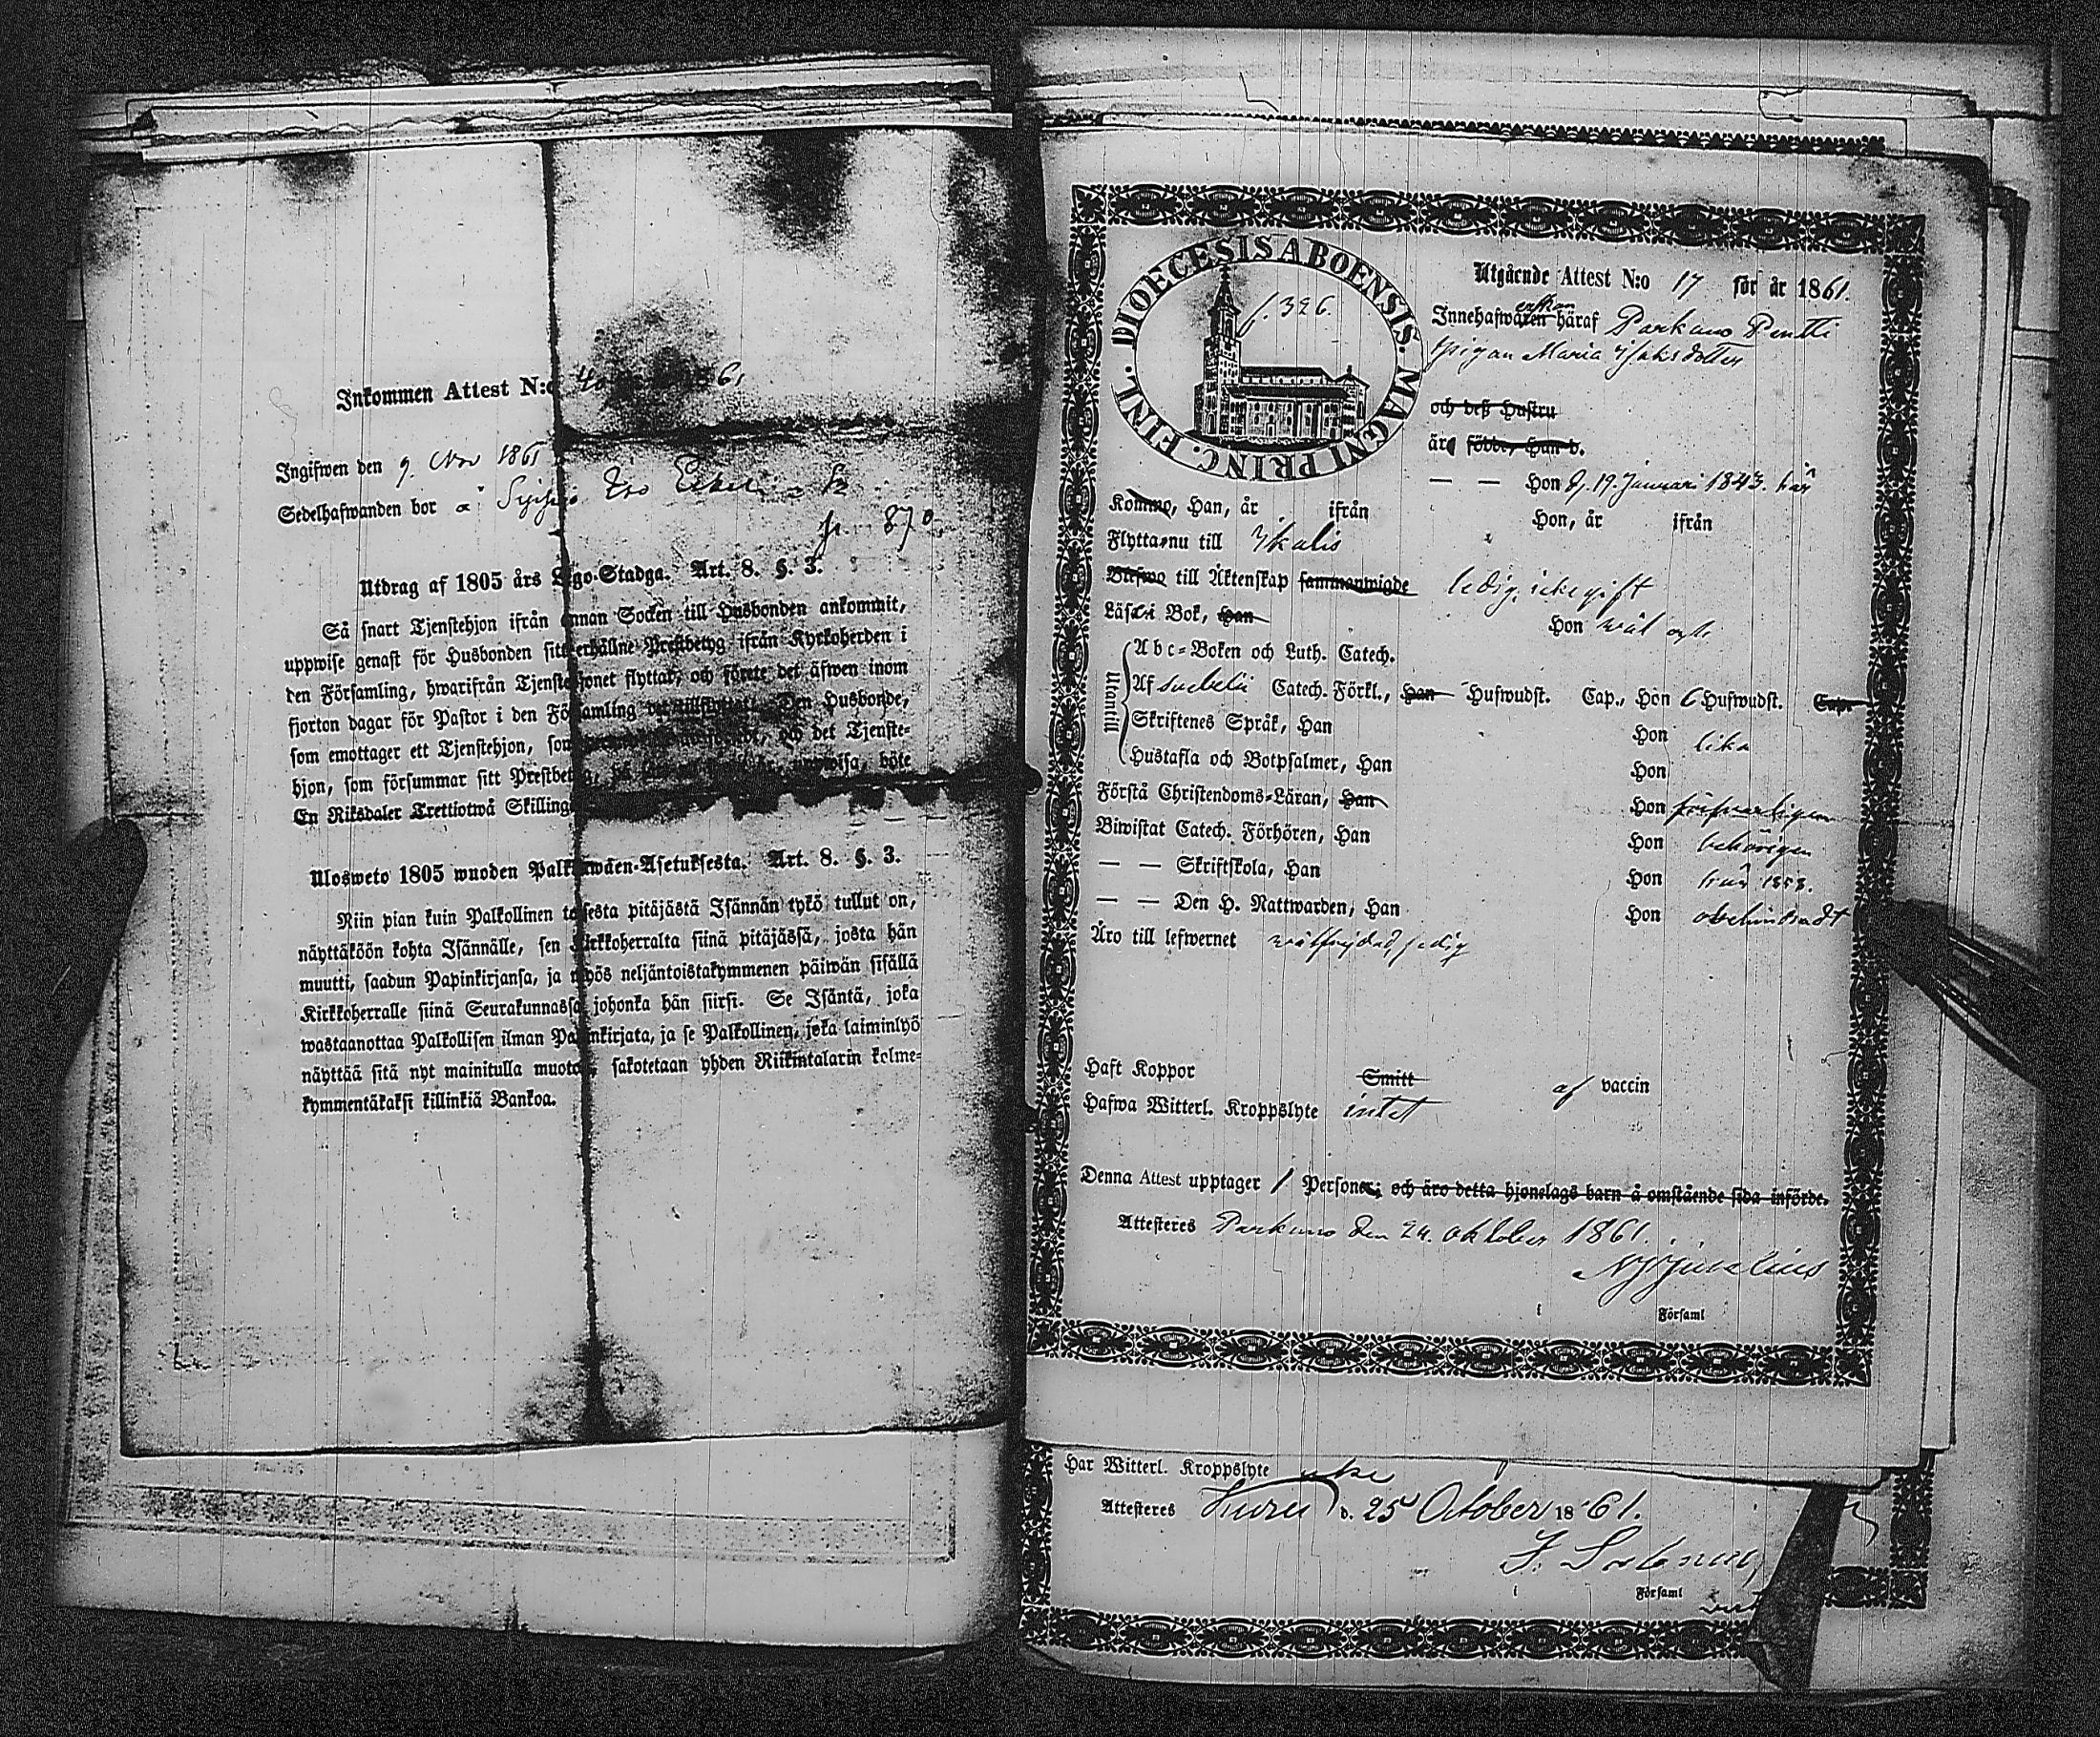 Inkommen Attest N:o 40 61
Ingifwen den 9. Nov 1861
Sedelhafwanden bor å
p. 870
Utdrag af 1805 års Lego-Stadga. Art. 8. §. 3.
Så snart Tjenstehjon ifrån annan Socken till Husbonden ankommit,
uppwise genast för Husbonden sitt erhållne Prestbetyg ifrån Kyrkoherden i
den Församling, hwarifrån Tjenstehjonet flyttat, och förete det äfwen inom
fjorton dagar för Pastor i den Församling Den Husbonde,
som emottager ett Tjenstehjon, och det Tjenste-
hjon, som försummar sitt Prestbetyg, böte
En Riksdaler Trettiotwå Skilling
Ulosweto 1805 wuoden Palkkawäen-Asetuksesta. Art. 8. §. 3.
Niin pian kuin Palkollinen toisesta pitäjästä Isännän tykö tullut on,
näyttäköön kohta Isännälle, sen Kirkkoherralta siinä pitäjässä, josta hän
muutti, saadun Papinkirjansa, ja myös neljäntoistakymmenen päiwän sisällä
Kirkkoherralle siinä Seurakunnassa johonka hän siirsi. Se Isäntä, joka
wastaanottaa Palkollisen ilman Papinkirjata, ja se Palkollinen, joka laiminlyö
näyttää sitä nyt mainitulla muotoa, sakotetaan yhden Riikintalarin kolme-
kymmentäkaksi killinkiä Bankoa.
DIOECESIS ABOENSIS. MAGNI PRINC. FINL.
f. 326.
Utgående Attest N:o 17 för år 1861.
Innehafwaren häraf Parkano Pentti
pigan Maria Isaksdotter
och deß Hustru
äro födde, Han d.
— — Hon d. 19. Januari 1843. här
Komne, Han, år ifrån Hon, år ifrån
Flytta nu till Ikalis
Blefwo till Äktenskap sammanwigde ledig, icke gift
Läsa i Bok, Han Hon wäl
Utantill
Abc-Boken och Luth. Catech.
Af Svebelii Catech. Förkl., Han Hufwudst. Cap., Hon 6 Hufwudst. Cap.
Skriftenes Språk, Han Hon lika
Hustafla och Botpsalmer, Han Hon
Förstå Christendoms-Läran, Han Hon försvarligen
Biwistat Catech. Förhören, Han Hon behörigen
— — Skriftskola, Han Hon här 1858.
— — Den H. Nattwarden, Han Hon obehindradt
Äro till lefwernet wälfrejdad, sedig
Haft Koppor Smitt af vaccin
Hafwa Witterl. Kroppslyte intet
Denna Attest upptager 1 Personer; och äro detta hjonelags barn å omstående sida införde.
Attesteres Parkano den 24. oktober 1861.
i Församl
Har Witterl. Kroppslyte icke
Attesteres Kuru d. 25 October 1861.
i Församl